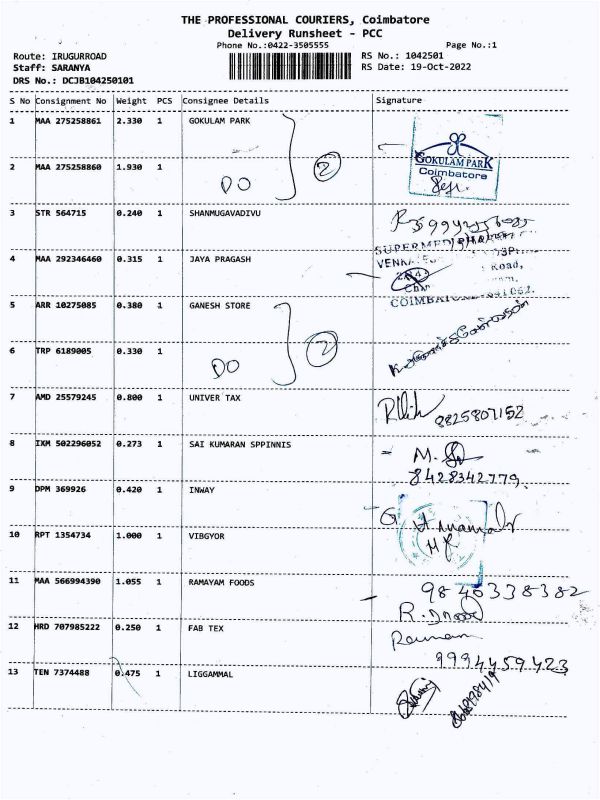 THE PROFESSIONAL COURIERS, Coimbatore
Delivery Runsheet - PCC
Phone No.:0422-3505555 Page No.:1
Route: IRUGURROAD RS No.: 1042501
Staff: SARANYA RS Date: 19-Oct-2022
DRS No.: DCJB104250101
S No Consignment No Weight PCS Consignee Details Signature
1 MAA 275258861 2.330 1 GOKULAM PARK
GOKULAM PARK
Coimbatore
2 MAA 275258860 1.930 1
DO 2
3 STR 564715 0.240 1 SHANMUGAVADIVU
4 MAA 292346460 0.315 1 JAYA PRAGASH
Road,
5 ARR 10275085 0.380 1 GANESH STORE
6 TRP 6189005 0.330 1
DO 2
7 AMD 25579245 0.800 1 UNIVER TAX
9825807152
8 IXM 502296052 0.273 1 SAI KUMARAN SPPINNIS
M.
8428342779
9 DPM 369926 0.420 1 INWAY
10 RPT 1354734 1.000 1 VIBGYOR
11 MAA 566994390 1.055 1 RAMAYAM FOODS
9846338382
12 HRD 707985222 0.250 1 FAB TEX
9994459423
13 TEN 7374488 0.475 1 LIGGAMMAL